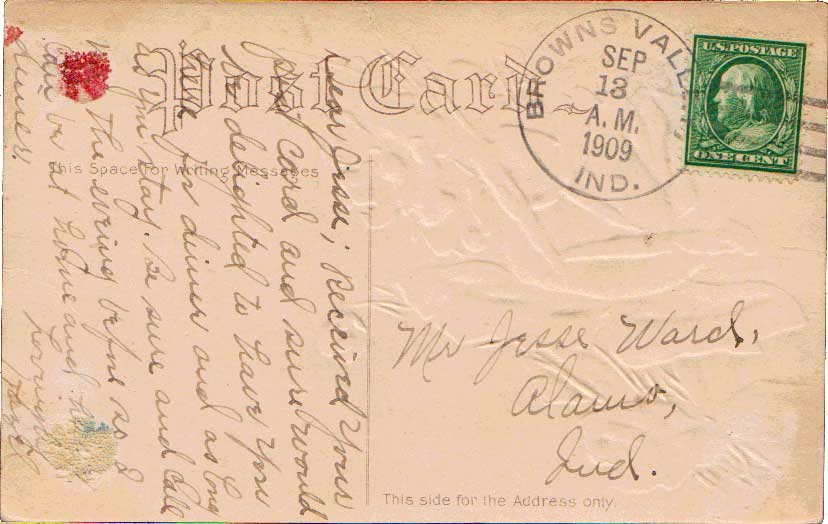 Post Card
BROWNS VALLEY
SEP
13
A.M.
1909
IND.
U.S. POSTAGE
ONE CENT
This Space for Writing Messages
Dear Jissi, received your
post card and sure would
be delighted to have you
here for dinner and as long
as you stay. Be sure and call
the evening before so I
can be at home and
dinner.
Lovingly
Mr Jesse Ward,
Alamo,
Ind.
This side for the Address only.